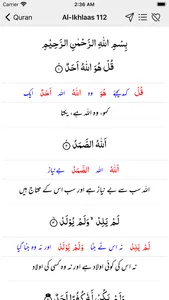 2:36 AM
Quran
Al-Ikhlaas 112
بِسْمِ اللهِ الرَّحْمٰنِ الرَّحِيْمِ
قُلْ هُوَ اللهُ اَحَدٌ
قُلْ کہدیجئے هُوَ وہ اللهُ اللہ اَحَدٌ ایک
کہو، وہ اللہ ہے، یکتا
اَللهُ الصَّمَدُ
اَللهُ اللہ الصَّمَدُ بے نیاز
اللہ سب سے بے نیاز ہے اور سب اس کے محتاج ہیں
لَمْ يَلِدْ وَلَمْ يُوْلَدْ
لَمْ يَلِدْ نہ اس نے جنا وَلَمْ يُوْلَدْ اور نہ وہ جنا گیا
نہ اس کی کوئی اولاد ہے اور نہ وہ کسی کی اولاد
وَلَمْ يَكُنْ لَّهٗ كُفُوًا اَحَدٌ